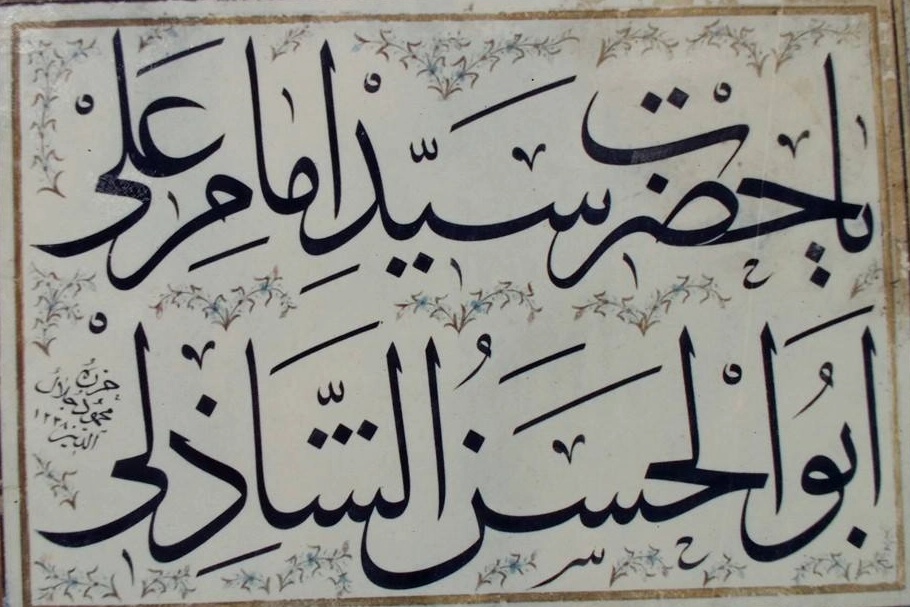 يا حضرت سيّد إمام علي
ابو الحسن الشّاذلي
حرره
محمود جلال
الدين